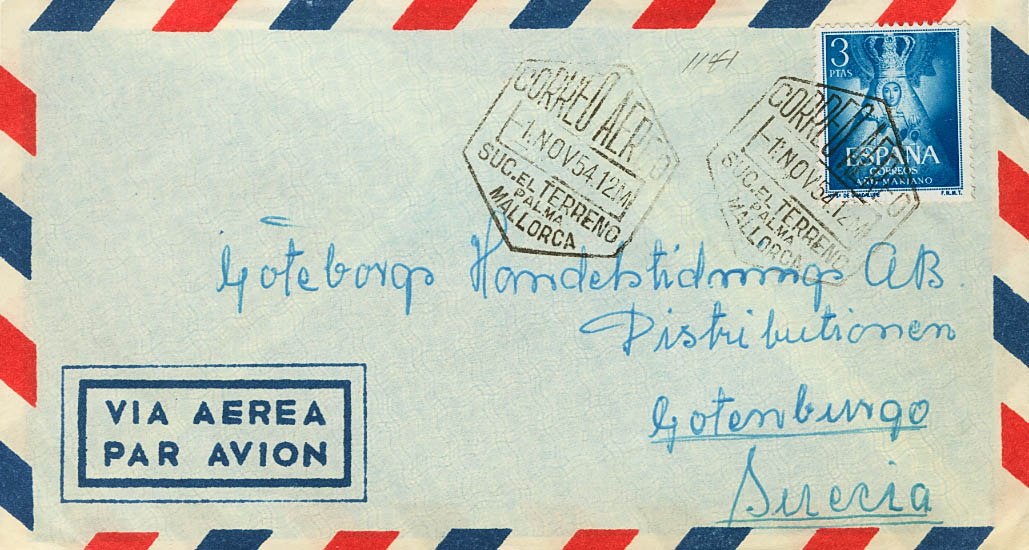 1141
3
PTAS
ESPAÑA
CORREOS
AÑO MARIANO
DE GUADALUPE F.N.M.T.
CORREO AEREO
1.NOV54.12M
SUC.EL TERRENO
PALMA
MALLORCA
CORREO AEREO
1.NOV54.12M
SUC.EL TERRENO
PALMA
MALLORCA
Göteborgs Handelstidnings AB.
Distributionen
Gotenburgo
Suecia
VIA AEREA
PAR AVION